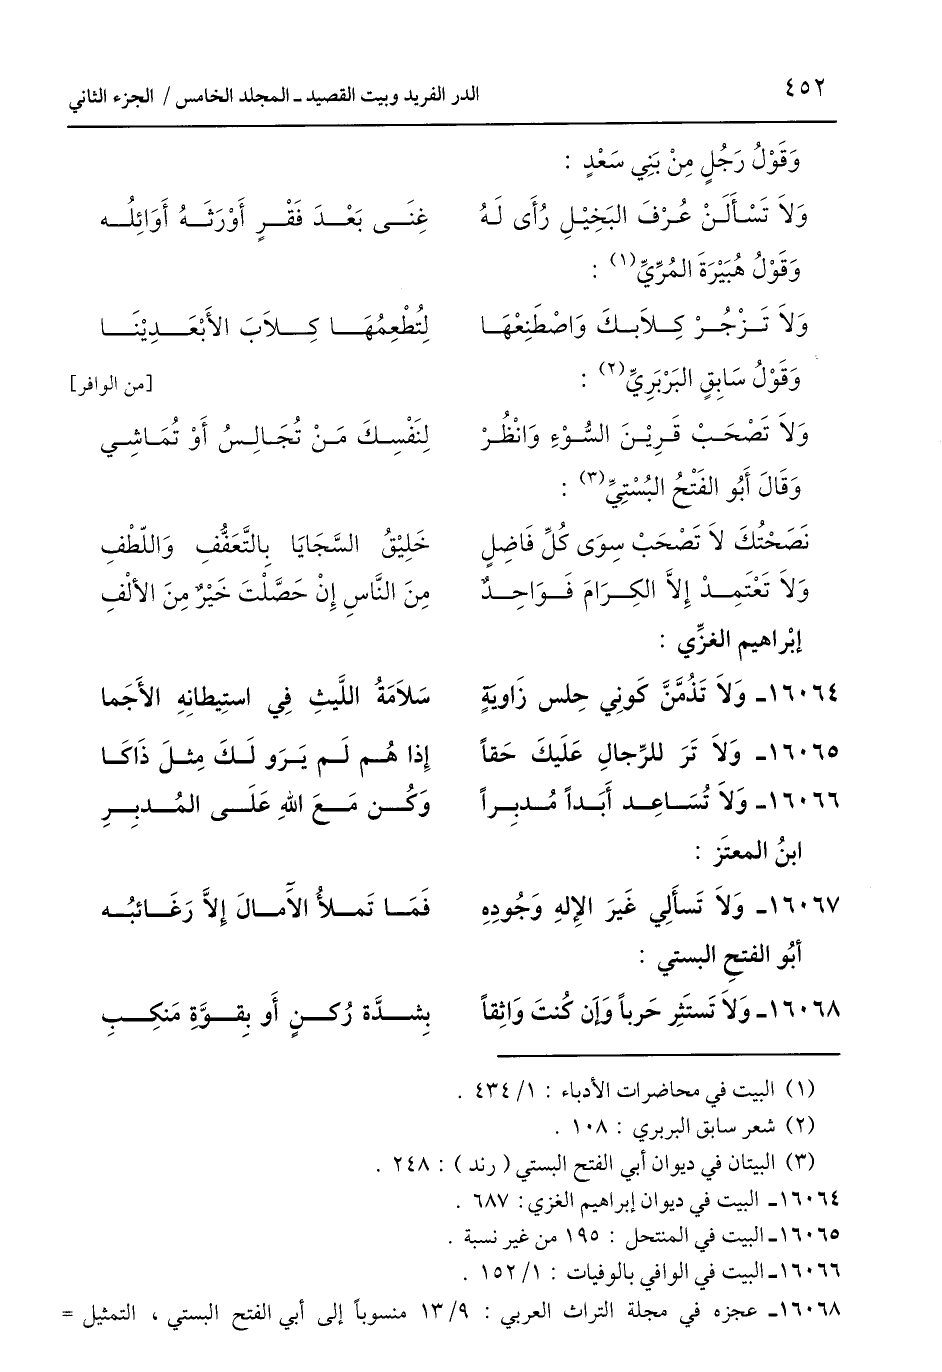 ٤٥٢
الدر الفريد وبيت القصيد ـ المجلد الخامس / الجزء الثاني
وَقَوْلُ رَجُلٍ مِنْ بَنِي سَعْدٍ :
وَلاَ تَسْأَلَنْ عُرْفَ البَخِيْلِ رُأَى لَهُ غِنَـى بَعْـدَ فَقْـرٍ أَوْرَثَـهُ أَوَائِلُـه
وَقَوْلُ هُبَيْرَةَ المُرِّيِّ(١) :
وَلاَ تَـزْجُـرْ كِـلاَبـكَ وَاصْطَنِعْهَـا لِتُطْعِمُهَـا كِـلاَبَ الأَبْعَـدِيْنَـا
وَقَوْلُ سَابِقٍ البَرْبَرِيِّ(٢) : [من الوافر]
وَلاَ تَصْحَبْ قَرِيْـنَ السُّـوْءِ وَانْظُـرْ لِنَفْسِـكَ مَـنْ تُجَـالِـسُ أَوْ تُمَـاشِـي
وَقَالَ أَبُو الفَتْحُ البُسْتِيِّ(٣) :
نَصَحْتُكَ لاَ تَصْحَبْ سِوَى كُلِّ فَاضِلٍ خَلِيْقُ السَّجَايَا بِالتَّعَفُّفِ وَاللّطْفِ
وَلاَ تَعْتَمِـدْ إِلاَّ الكِـرَامَ فَـوَاحِـدٌ مِنَ النَّاسِ إِنْ حَصَّلْتَ خَيْرٌ مِنَ الألْفِ
إبْراهيم الغزِّي :
١٦٠٦٤ـ وَلاَ تَذُمَّنَّ كَونِي حِلس زَاويَةٍ سَلاَمَةُ اللَّيثِ فِي استِيطانِهِ الأَجَما
١٦٠٦٥ـ وَلاَ تَرَ للرِّجالِ عَلَيكَ حَقاً إذا هُـم لَـم يَـرَو لَـكَ مِثـلَ ذَاكَـا
١٦٠٦٦ـ وَلاَ تُسَـاعِـد أَبَـداً مُـدبـراً وَكُـن مَـعَ اللهِ عَلَـى المُـدبـرِ
ابنُ المعتَز :
١٦٠٦٧ـ وَلاَ تَسألِي غَيرَ الإلهِ وَجُودِهِ فَمَـا تَمـلأُ الآمـالَ إلاَّ رَغَـائبُـه
أبُو الفتحِ البستي :
١٦٠٦٨ـ وَلاَ تَستَثِر حَرباً وَإن كُنتَ وَاثِقاً بِشـدَّة رُكـنٍ أَو بِقـوَّةِ مَنكِـبِ
(١) البيت في محاضرات الأدباء : ١/ ٤٣٤ .
(٢) شعر سابق البربري : ١٠٨ .
(٣) البيتان في ديوان أبي الفتح البستي ( رند ) : ٢٤٨ .
١٦٠٦٤ـ البيت في ديوان إبراهيم الغزي : ٦٨٧ .
١٦٠٦٥ـ البيت في المنتحل : ١٩٥ من غير نسبة .
١٦٠٦٦ـ البيت في الوافي بالوفيات : ١/ ١٥٢ .
١٦٠٦٨ـ عجزه في مجلة التراث العربي : ٩/ ١٣ منسوباً إلى أبي الفتح البستي ، التمثيل =